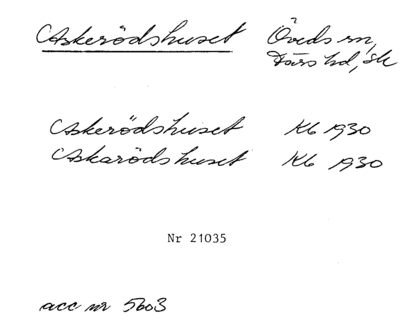 Askerödshuset Öveds sn,
Färs hd, Sk
Askerödshuset Kb 1930
Askarödshuset Kb 1930
Nr 21035
acc nr 5603